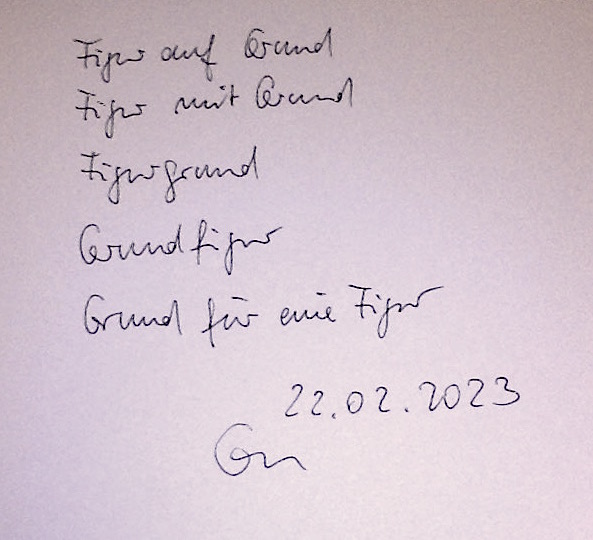 Figur auf Grund
Figur mit Grund
Figurgrund
Grundfigur
Grund für eine Figur
22.02.2023